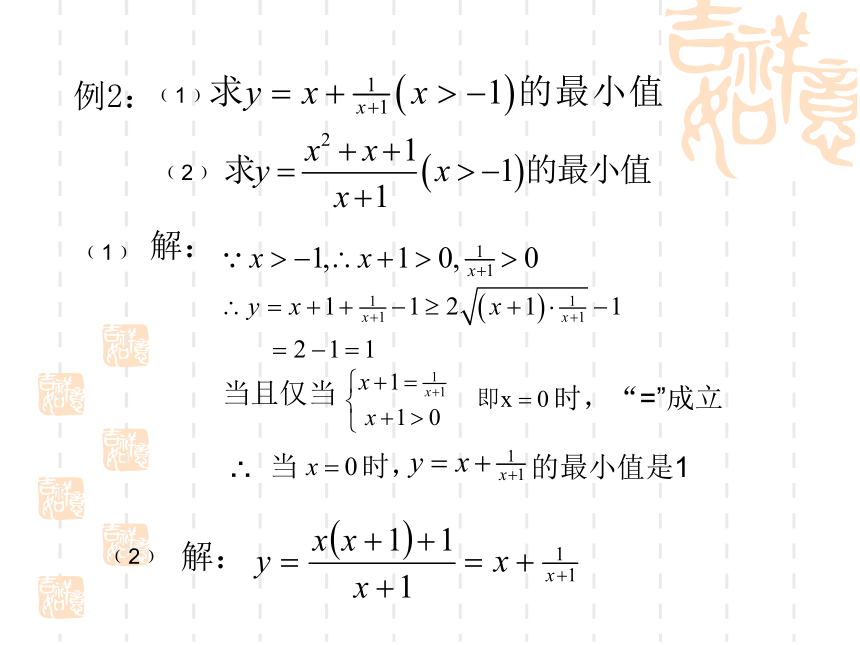 例2：（1）求y = x + \frac{1}{x+1} (x > −1)的最小值
（2）求y = \frac{x^2 + x + 1}{x + 1} (x > −1)的最小值
（1）解：∵ x > −1, ∴ x + 1 > 0, \frac{1}{x+1} > 0
∴ y = x + 1 + \frac{1}{x+1} − 1 ≥ 2\sqrt{(x + 1) · \frac{1}{x+1}} − 1
= 2 − 1 = 1
当且仅当 \begin{cases} x + 1 = \frac{1}{x+1} \\ x + 1 > 0 \end{cases} 即x = 0时，“=”成立
∴ 当 x = 0时, y = x + \frac{1}{x+1} 的最小值是1
（2）解：y = \frac{x(x + 1) + 1}{x + 1} = x + \frac{1}{x+1}
吉祥如意
吉祥如意
吉祥如意
吉祥如意
吉祥如意
吉祥如意
吉祥如意